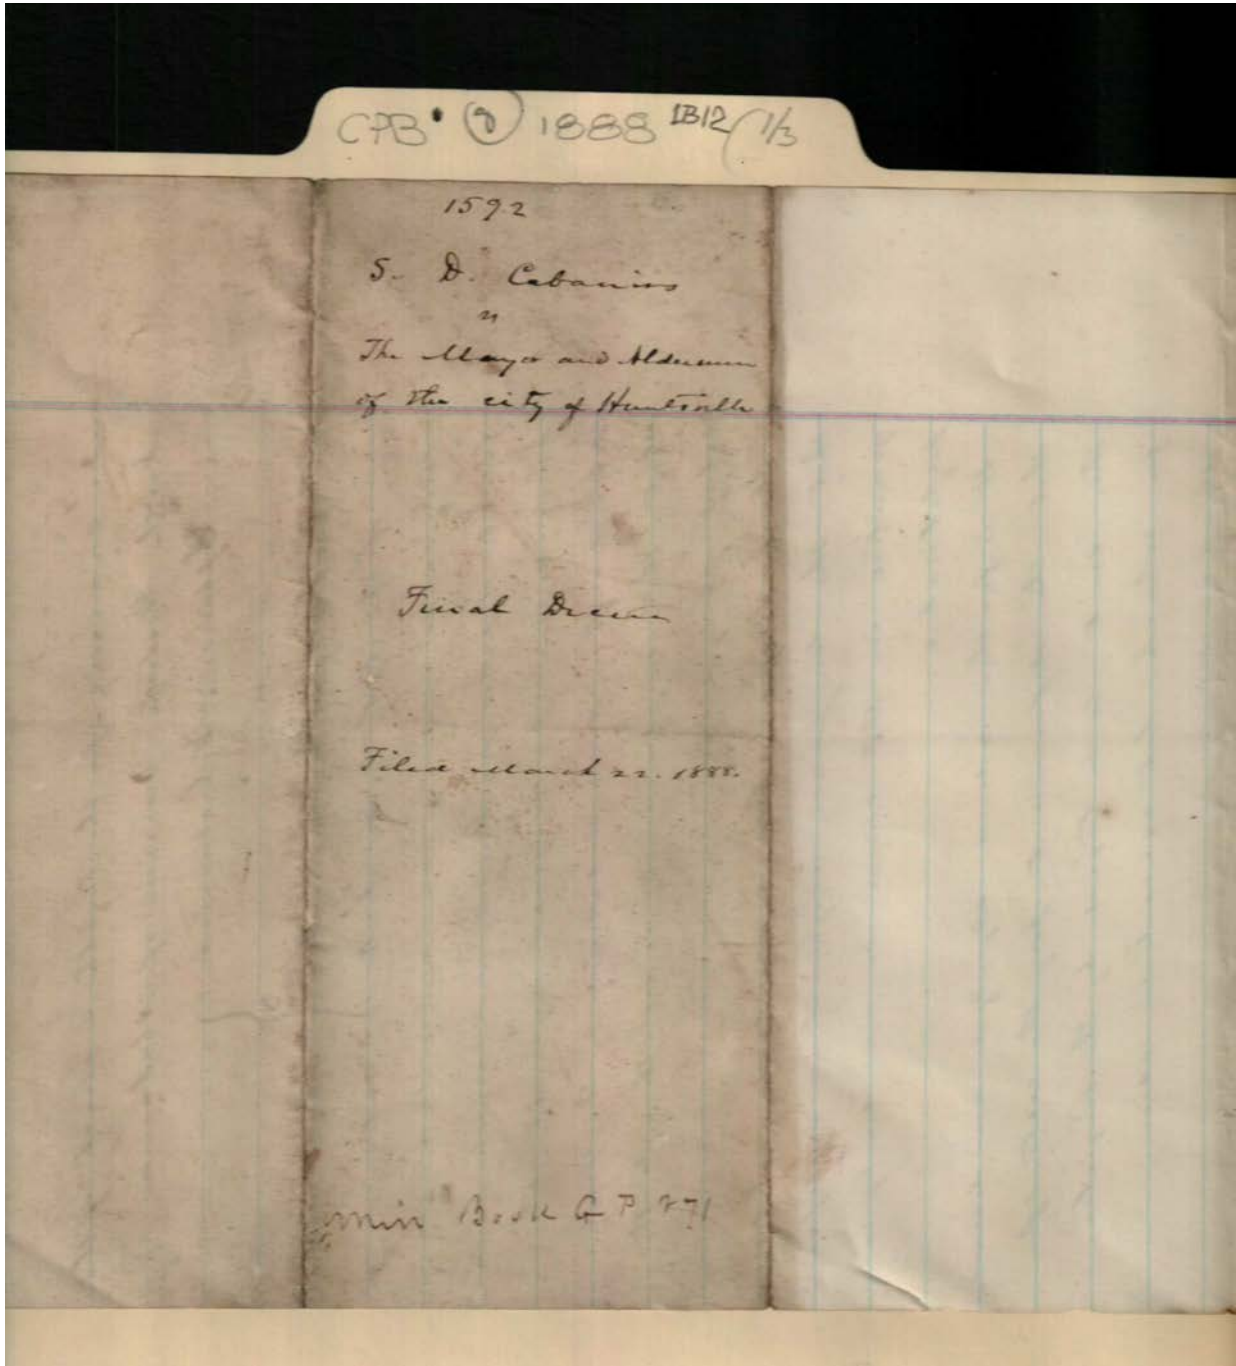 CPB 8 1888 IB12 1/3
1592
S. D. Cabaniss
vs
The Mayor and Aldermen
of the city of Huntsville
Final Decree
Filed March 22. 1888.
Min Book G P 271